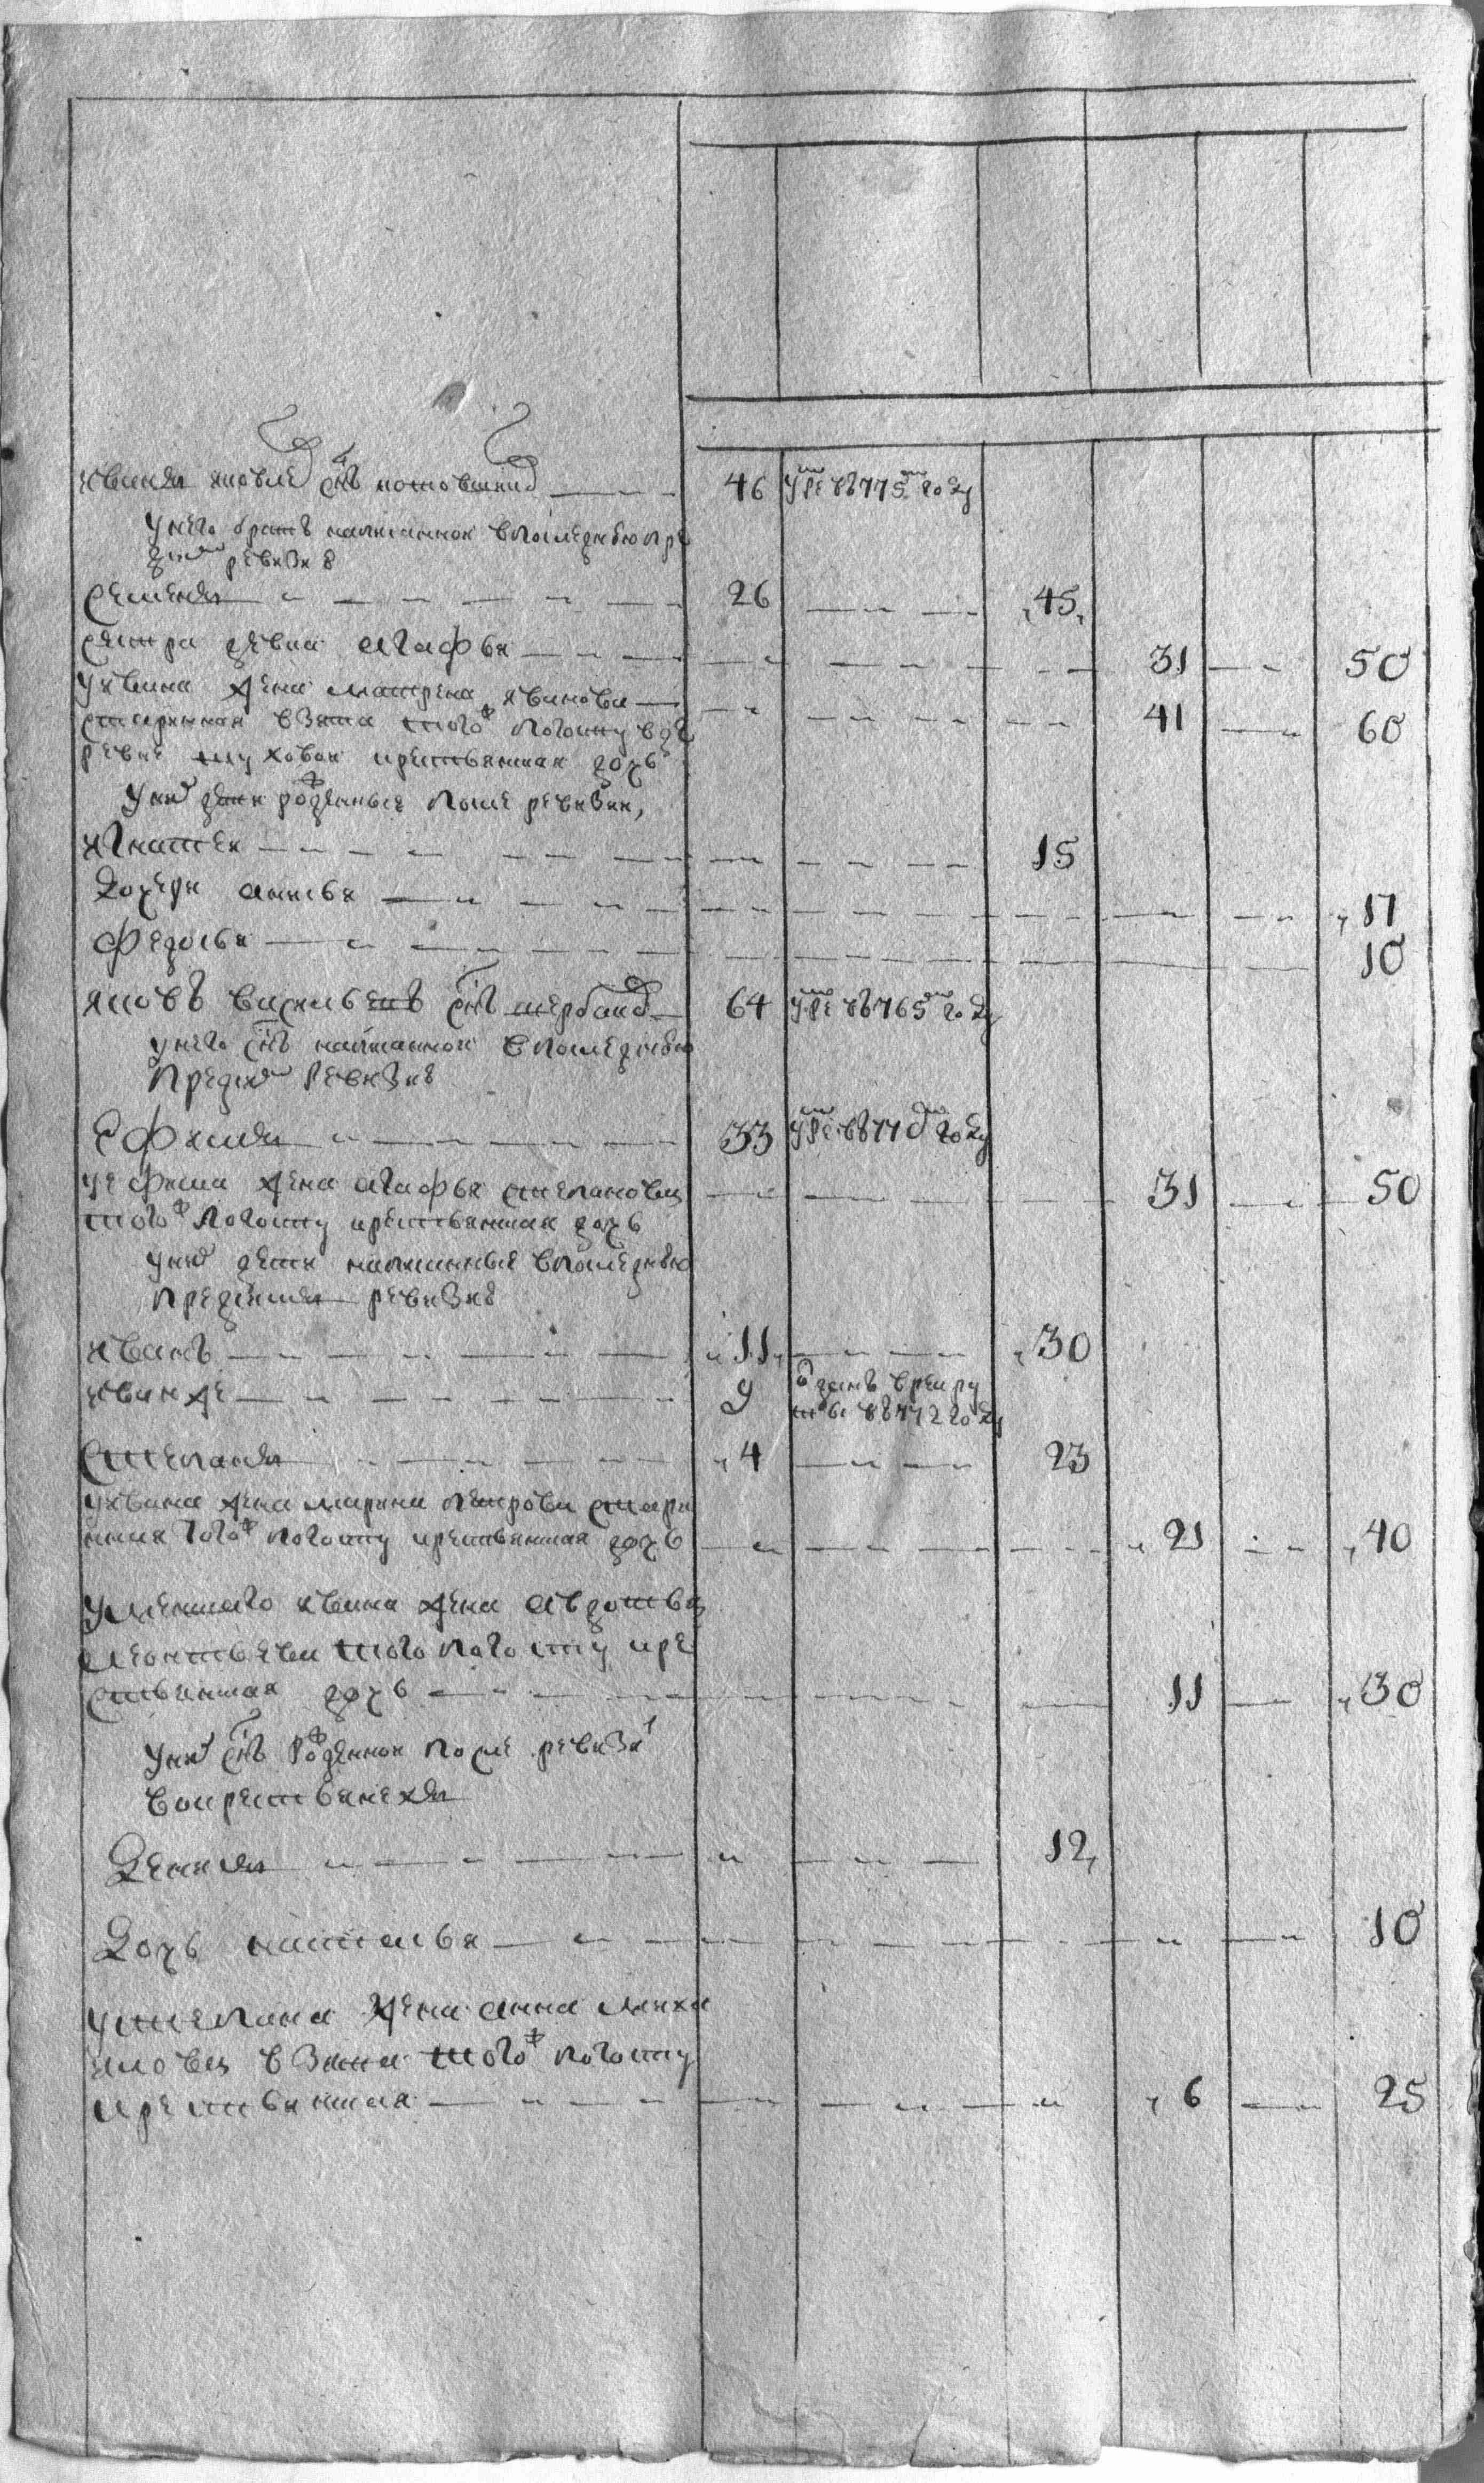 иванъ яковлевъ снъ котовшин — 46 умре въ 775мъ году
у него братъ написанной в последнюю пре
днюю ревизию
семенъ — 26 — 45
сестра девка агафья — 31 — 50
у ивана жена матрена иванова —
старинная взята того ж погосту в де — 41 — 60
ревне крестьянская дочь
у них дети рожденные после ревизии,
игнатей — 15
дочери анисья — 17
федосья — 10
яковъ васильевъ снъ щербаков — 64 умре въ 765мъ году
у него снъ написанной в последнюю
преднюю ревизию
ефимъ — 33 умре въ 770м году
у ефима жена агафья степановa — 31 — 50
того ж погосту крестьянская дочь
у них дети написанные в последнюю
преднюю ревизию
иванъ — 11 — 30
иван же — 9 отданъ в рекру
ты въ 772 году
степанъ — 4 — 23
у ивана жена марина петрова стари
нная того ж погосту крестьянская дочь — 21 — 40
у меншаго ивана жена авдотья
леонтьева того погосту кре
стьянская дочь — 11 — 30
у них снъ рожденной после ревизи
в крестьянехъ
демидъ — 12
дочь наталья — 10
у степана жена анна миха
илова взята того ж погосту
крестьянская — 6 — 25